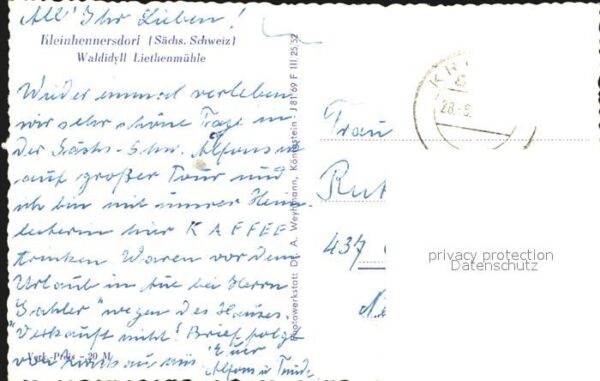 All' Ihr Lieben!
Kleinhennersdorf (Sächs. Schweiz)
Waldidyll Liethenmühle
Wieder einmal verleben
wir sehr schöne Tage in
der Sächs. Schw. Alfons ist
auf großer Tour und
ich bin mit unsrer
hier KAFFEE
trinken. Waren vor dem
Urlaub in Aue bei Herrn
Sahler wegen des Hauses.
"Verkauft nicht! Brief folgt
von aus. Euer
Alfons u. Trude
Verk.-Preis -,20 M
Fotowerkstatt Dr. A. Weyhmann, Königstein - J 81/69 F III 25 52
KR
28.-6.
Frau
Rut
437
privacy protection
Datenschutz